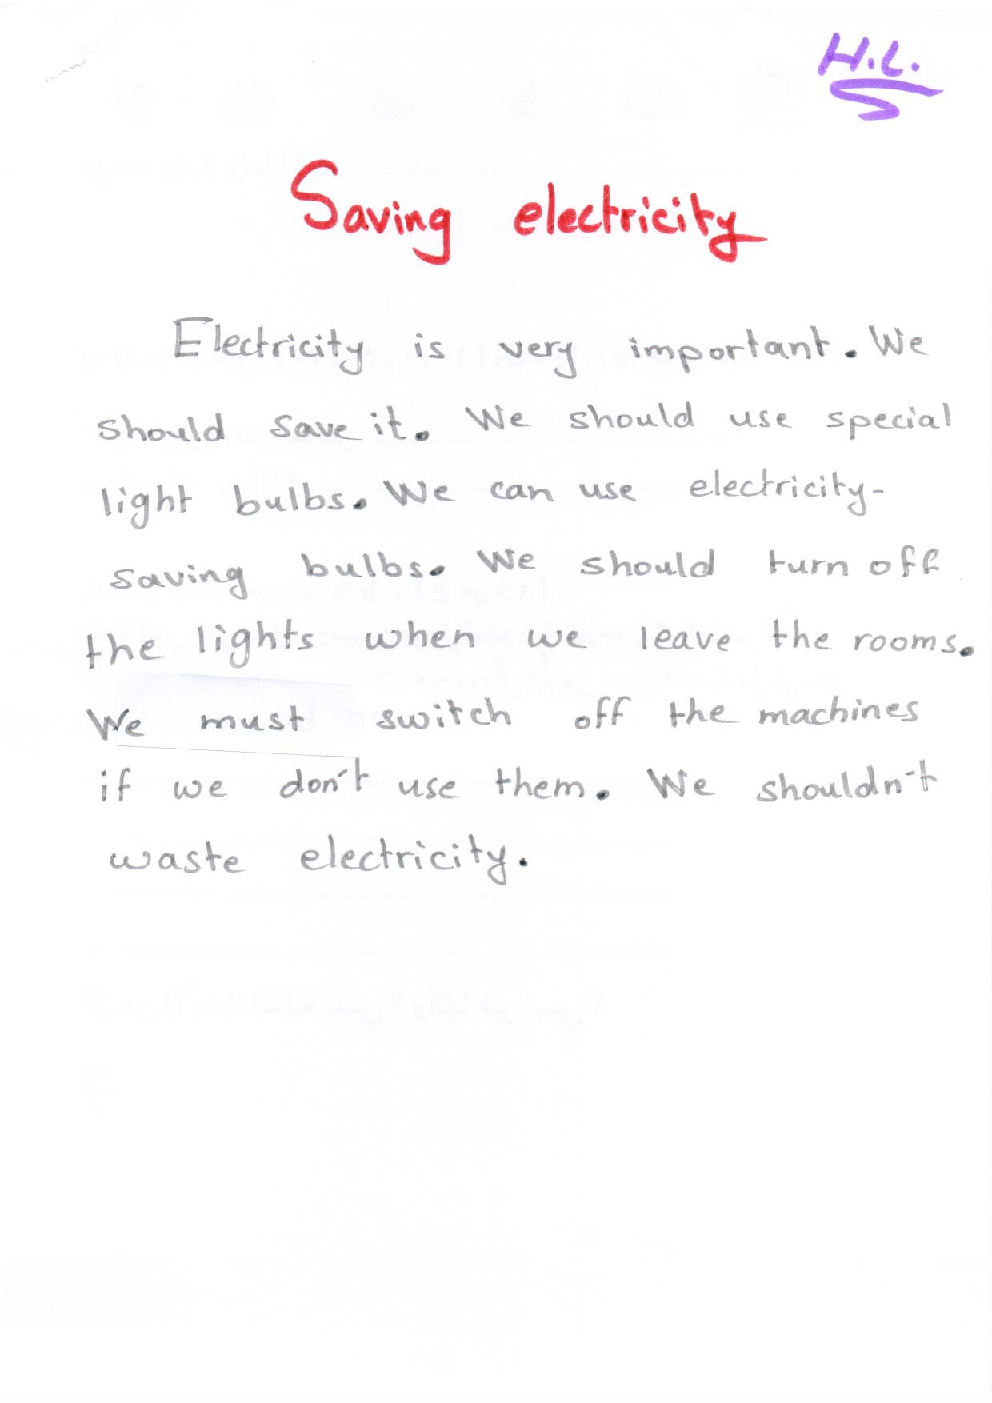 H.L.
Saving electricity
Electricity is very important. We
should save it. We should use special
light bulbs. We can use electricity-
saving bulbs. We should turn off
the lights when we leave the rooms.
We must switch off the machines
if we don't use them. We shouldn't
waste electricity.